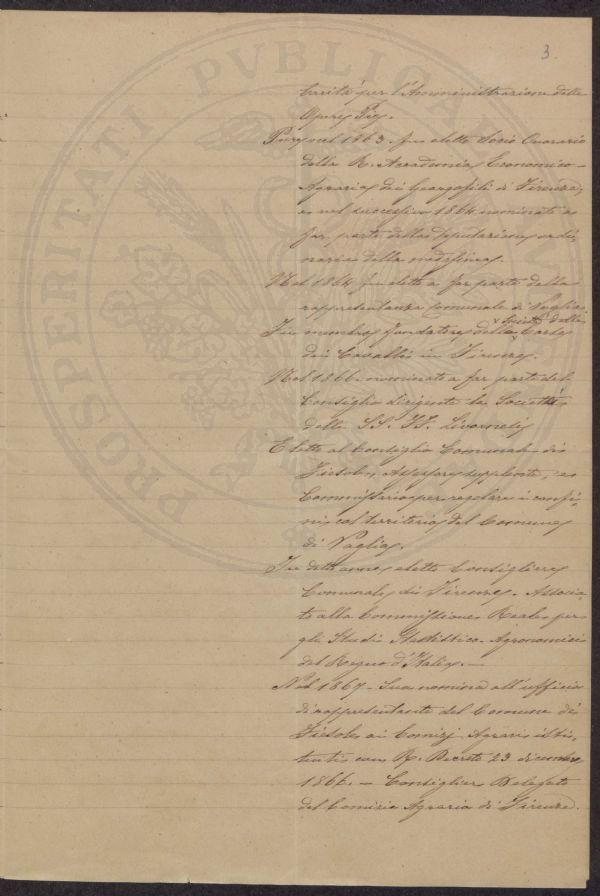 3.
Carità per l'Amministrazione delle
Opere Pie.
Pure nel 1863 fu eletto Socio Onorario
della R. Accademia Economico-
Agraria dei Georgofili di Firenze,
e nel successivo 1864 nominato a
far parte della deputazione ordi-
naria della medesima.
Nel 1864 fu eletto a far parte della
rappresentanza comunale di Vaglia.
Fu membro fondatore della Società delle Corse
dei Cavalli in Firenze.
Nel 1866 nominato a far parte del
Consiglio dirigente la Società
delle SS. FF. Livornesi
Eletto al Consiglio Comunale di
Fiesole, Assessore supplente, e
Commissario per regolare i confi-
ni col territorio del Comune
di Vaglia.
In detto anno eletto Consigliere
Comunale di Firenze. Associa-
to alla Commissione Reale per
gli Studi Statistico-Agronomici
del Regno d'Italia.—
Nel 1867 - Sua nomina all'ufficio
di rappresentante del Comune di
Fiesole ai Comizj Agrari isti-
tuiti con R. Decreto 23 dicembre
1866. — Consigliere Delegato
del Comizio Agrario di Firenze.
PROSPERITATI PUBLICAE